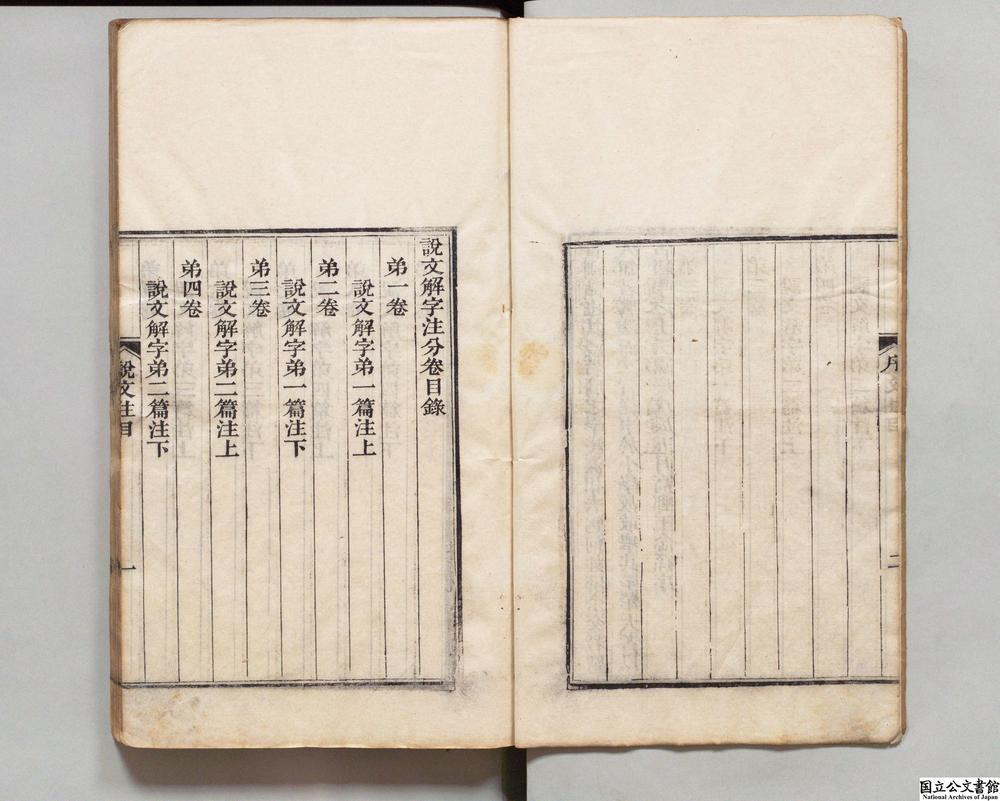 說文解字注分卷目錄
弟一卷
說文解字弟一篇注上
弟二卷
說文解字弟一篇注下
弟三卷
說文解字弟二篇注上
弟四卷
說文解字弟二篇注下
說文注目
一
序
二
国立公文書館
National Archives of Japan